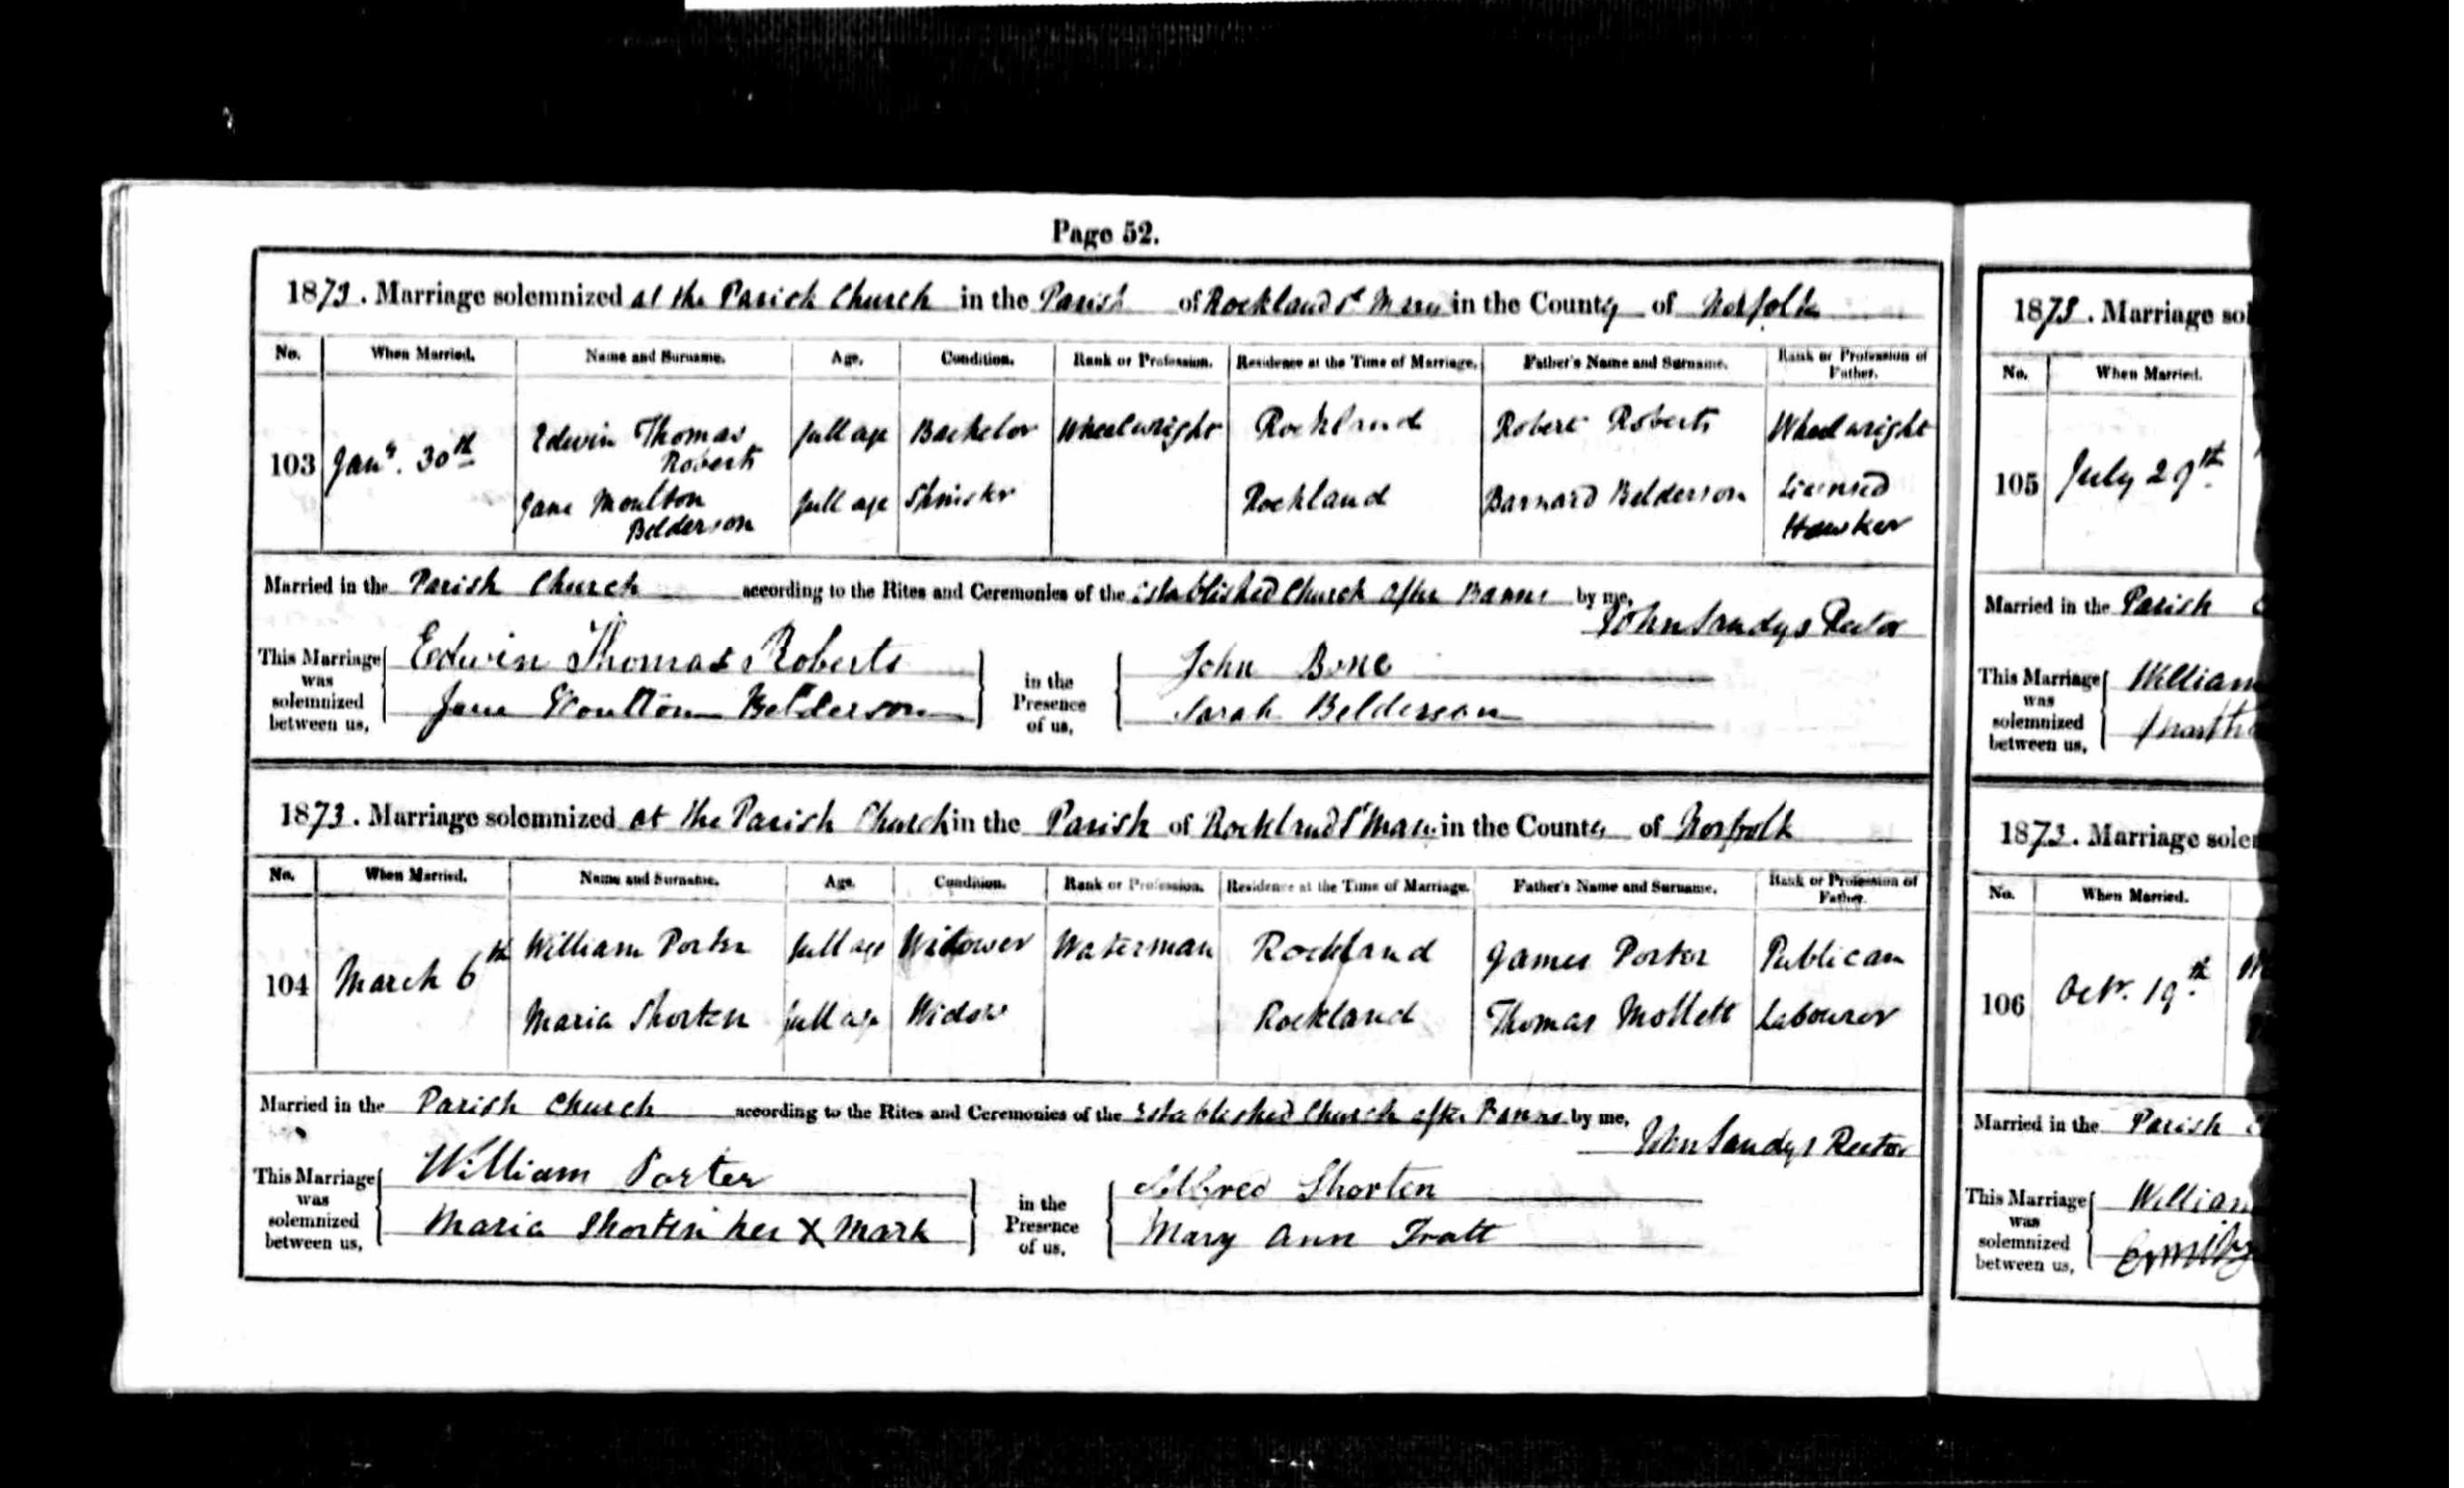 Page 52.
1873. Marriage solemnized at the Parish Church in the Parish of Rockland St Mary in the County of Norfolk
No. When Married. Name and Surname. Age. Condition. Rank or Profession. Residence at the Time of Marriage. Father's Name and Surname. Rank or Profession of Father.
103 Jany. 30th Edwin Thomas Roberts full age Bachelor Wheelwright Rockland Robert Roberts Wheelwright
Jane Moulton Belderson full age Spinster Rockland Barnard Belderson Licensed Hawker
Married in the Parish Church according to the Rites and Ceremonies of the Established Church after Banns by me,
John Sandys Rector
This Marriage was solemnized between us, Edwin Thomas Roberts
Jane Moulton Belderson
in the Presence of us, John Bone
Sarah Belderson
1873. Marriage solemnized at the Parish Church in the Parish of Rockland St Mary in the County of Norfolk
No. When Married. Name and Surname. Age. Condition. Rank or Profession. Residence at the Time of Marriage. Father's Name and Surname. Rank or Profession of Father.
104 March 6th William Porter full age Widower Waterman Rockland James Porter Publican
Maria Shorten full age Widow Rockland Thomas Mollett Labourer
Married in the Parish Church according to the Rites and Ceremonies of the Established Church after Banns by me,
John Sandys Rector
This Marriage was solemnized between us, William Porter
Maria Shorten her X mark
in the Presence of us, Alfred Shorten
Mary Ann Tratt
1873. Marriage sol
No. When Married.
105 July 29th
Married in the Parish
This Marriage was solemnized between us, William
Martha
1873. Marriage sole
No. When Married.
106 Octr. 19th
Married in the Parish
This Marriage was solemnized between us, William
Emily